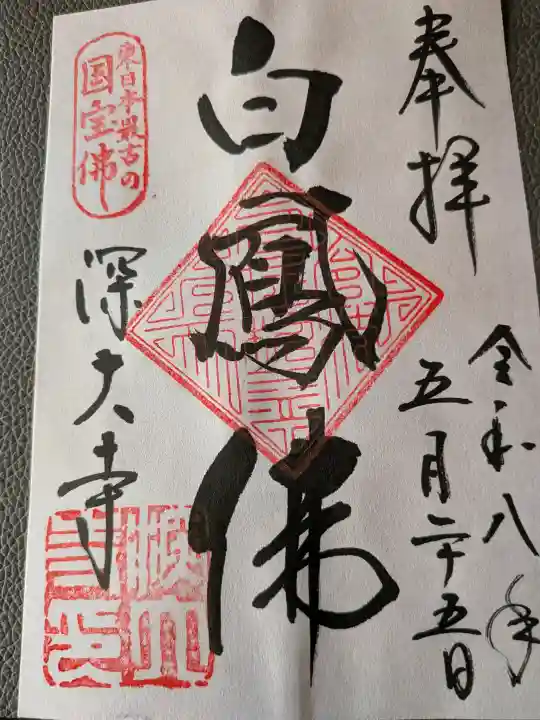 奉拝
令和八年
五月二十五日
白鳳佛
東日本最古の
国宝佛
深大寺